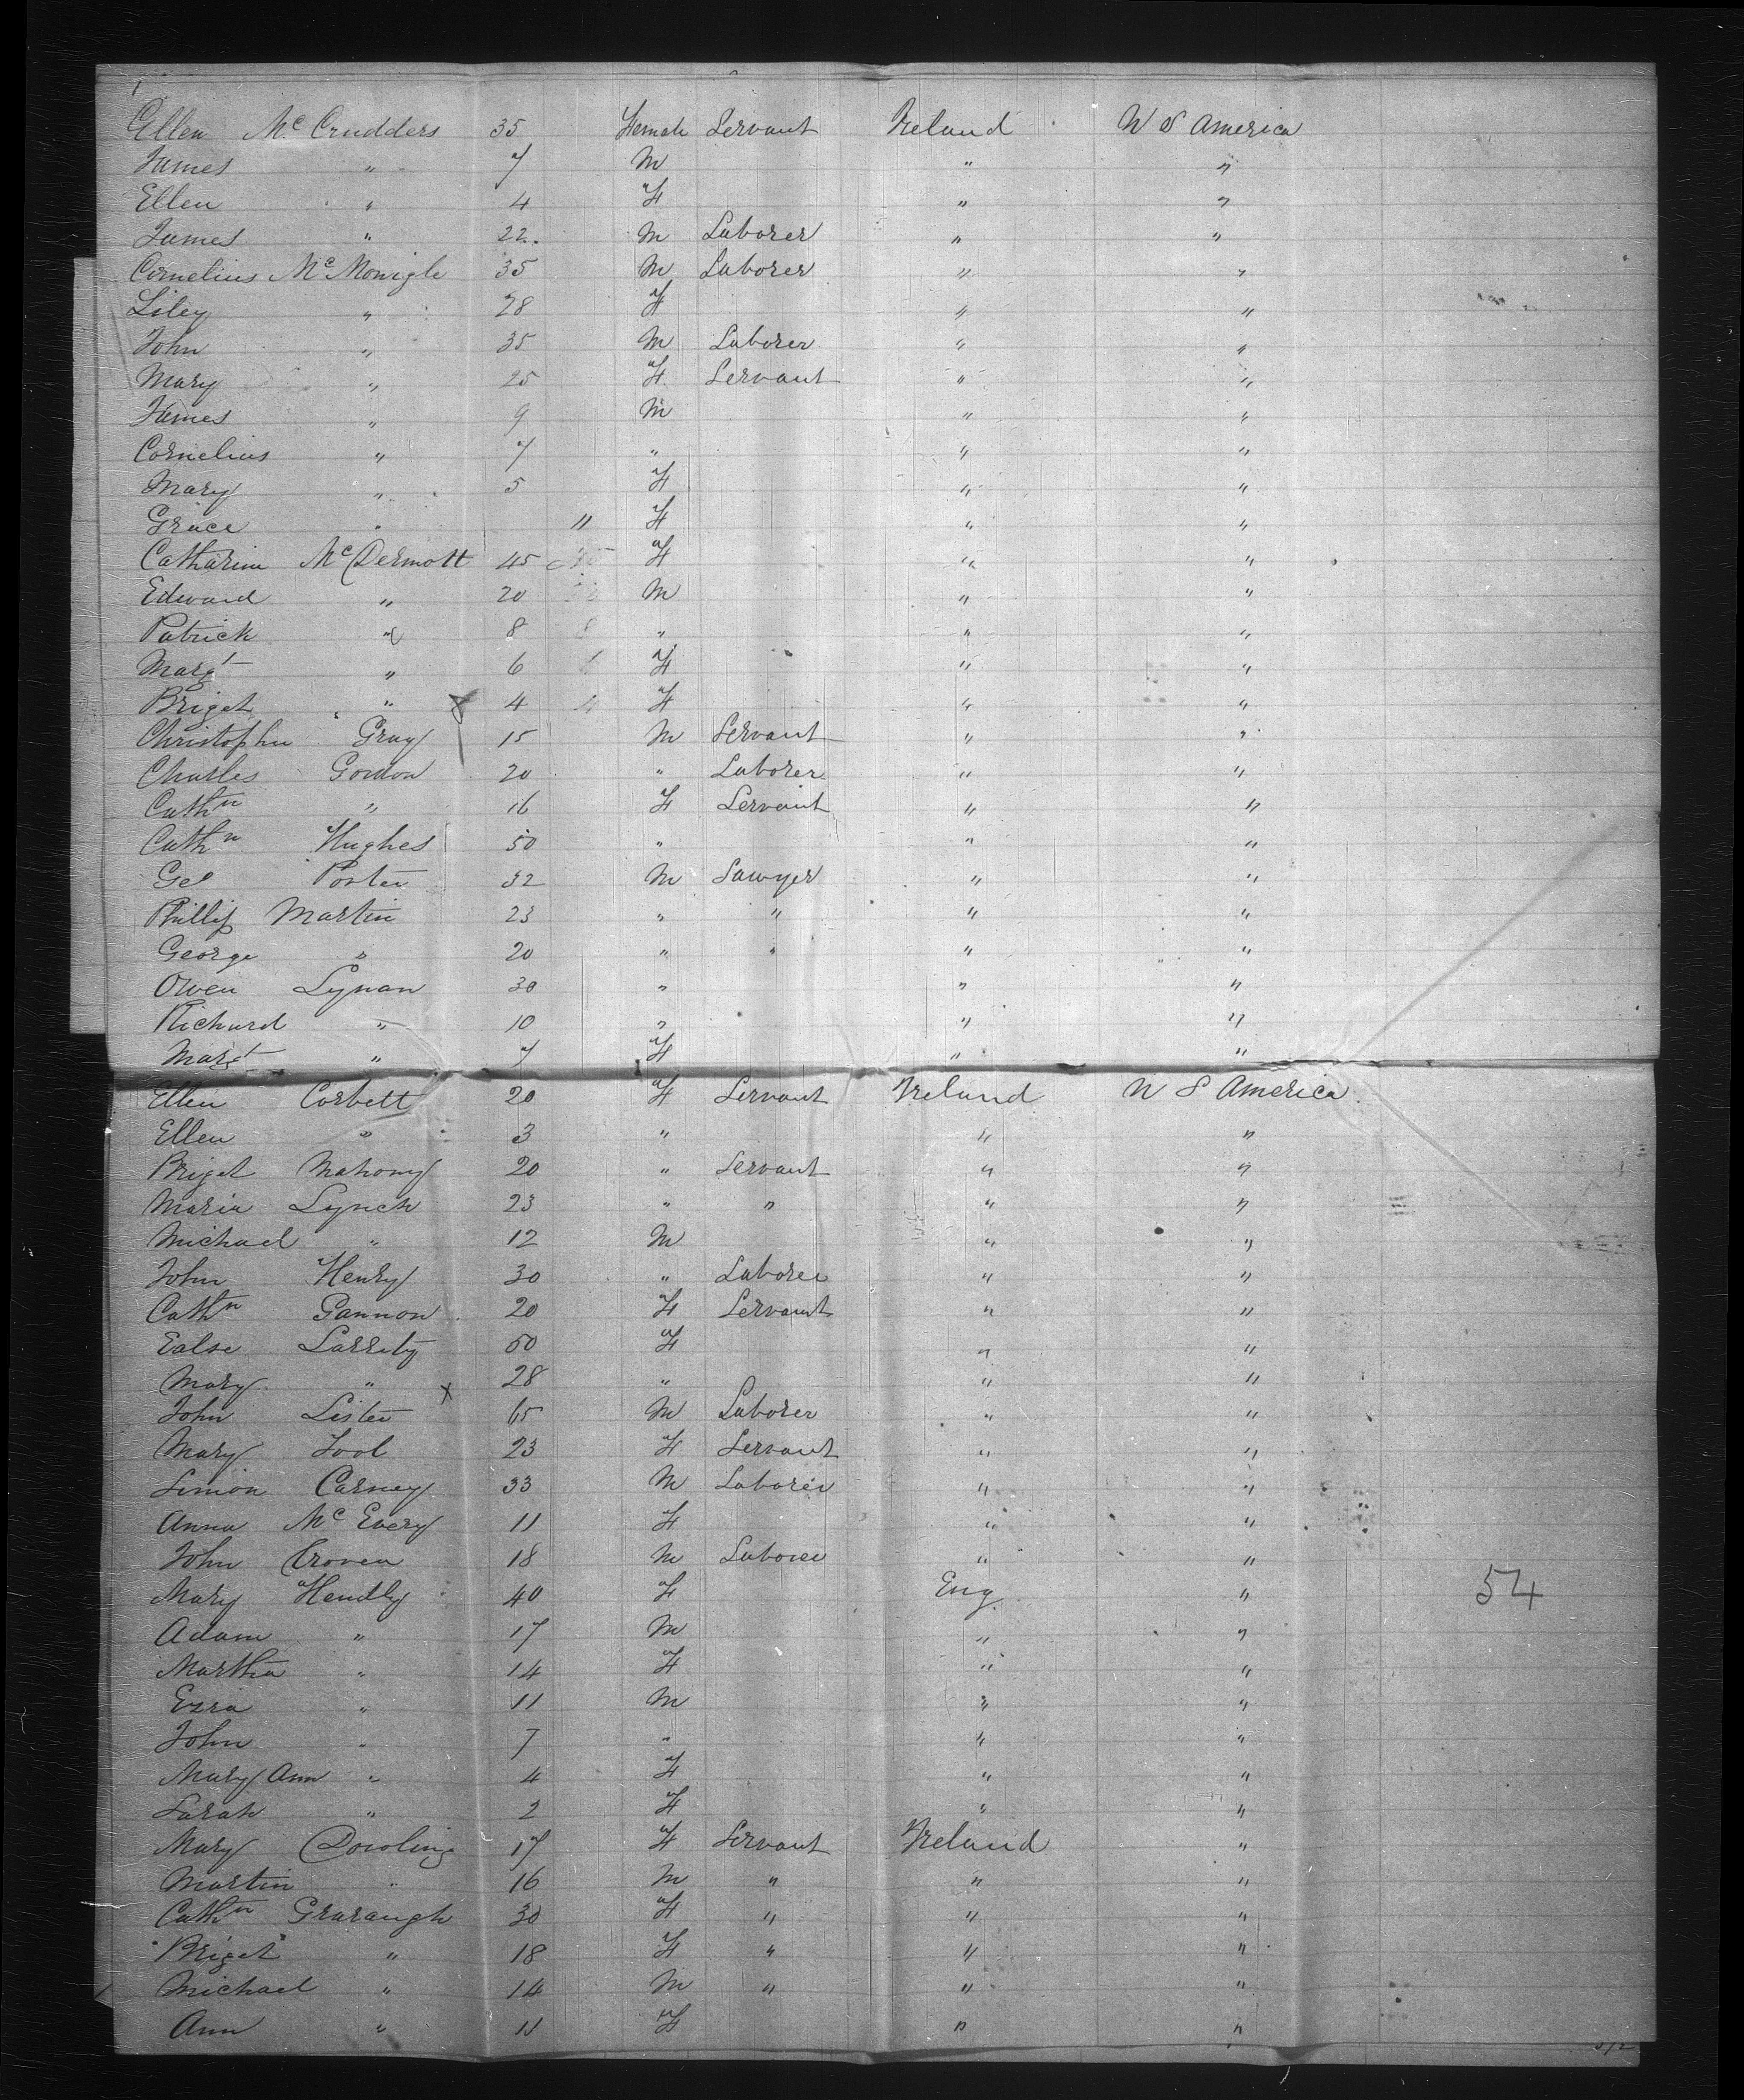 Ellen McCrudders 35 Female Servant Ireland U S America
James " 7 M " "
Ellen " 4 F " "
James " 22 M Laborer " "
Cornelius McMonigle 35 M Laborer " "
Liley " 28 F " "
John " 35 M Laborer " "
Mary " 25 F Servant " "
James " 9 M " "
Cornelius " 7 " " "
Mary " 5 F " "
Grace " 11 F " "
Catharine McDermott 45 F " "
Edward " 20 M " "
Patrick " 8 8 " " "
Margt " 6 6 F " "
Briget " 4 4 F " "
Christopher Gray 15 M Servant " "
Charles Gordon 20 " Laborer " "
Cathn " 16 F Servant " "
Cathn Hughes 50 " " "
Geo Porter 32 M Sawyer " "
Phillip Martin 23 " " " "
George " 20 " " " "
Owen Lynan 30 " " "
Richard " 10 " " "
Margt " 7 F " "
Ellen Corbett 20 F Servant Ireland U S America
Ellen " 3 " " "
Briget Mahony 20 " Servant " "
Maria Lynch 23 " " " "
Michael " 12 M " "
John Henry 30 " Laborer " "
Cathn Gannon 20 F Servant " "
Ealse Larrity 50 F " "
Mary " x 28 " " "
John Lister 65 M Laborer " "
Mary Tool 23 F Servant " "
Simon Carney 33 M Laborer " "
Anna McEvery 11 F " "
John Croven 18 M Laborer " "
Mary Hendly 40 F Eng. " 54
Adam " 17 M " "
Martha " 14 F " "
Ezra " 11 M " "
John " 7 " " "
Mary Ann " 4 F " "
Sarah " 2 F " "
Mary Dowling 17 F Servant Ireland "
Martin " 16 M " " "
Cathn Graraugh 30 F " " "
Briget " 18 F " " "
Michael " 14 M " " "
Ann " 11 F " "